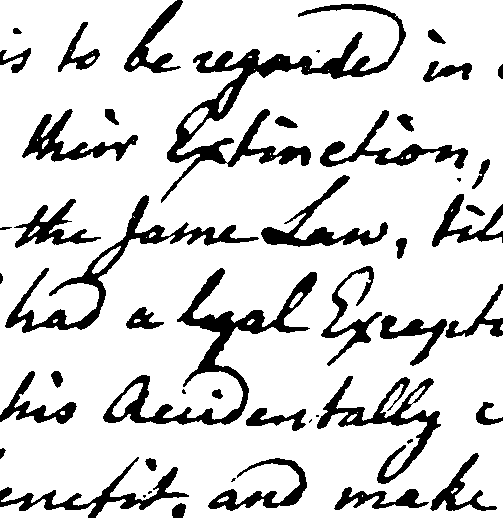 is to be regarded in
their Extinction,
the same Law, till
had a legal Excepti
his Accidentally
enefit, and make